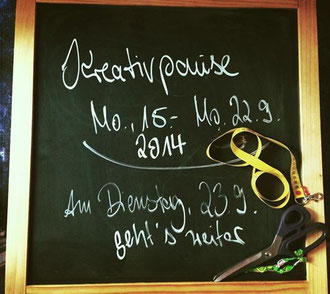 Kreativpause
Mo., 15.- Mo. 22.9.
2014
Am Dienstag, 23.9.
geht's weiter